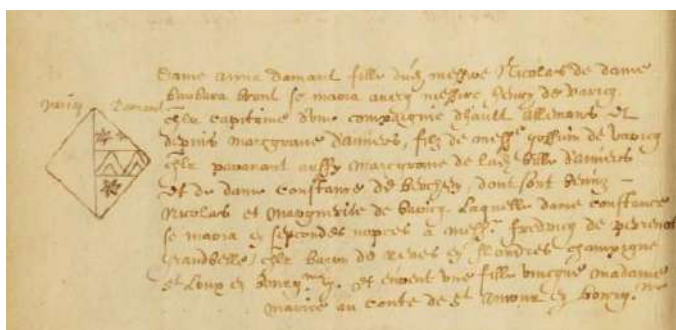 Varicq Damant
Dame Anna Damant fille dudz messire Nicolas de dame
Barbara Brant se maria avecq messire Henry de Varicq
chlr capitaine d'une compaignie d'hault allemans et
depuis marcgrave d'anvers, filz de mess.re gossuin de varicq
chlr paravant aussy marcgrave de ladz ville d'anvers
et de dame Constance de Berchem, dont sont venuz -
Nicolas et Marguerite de Varicq. Laquelle dame Constance
se maria en secondes nopces a mess.re fredericq de perrenot
Grandvelle, chlr baron de Renes en flandres champigne
st Loup en Bourg.ne. et eurent une fille unicque madame
mariee au conte de st Amour en bourg.ne